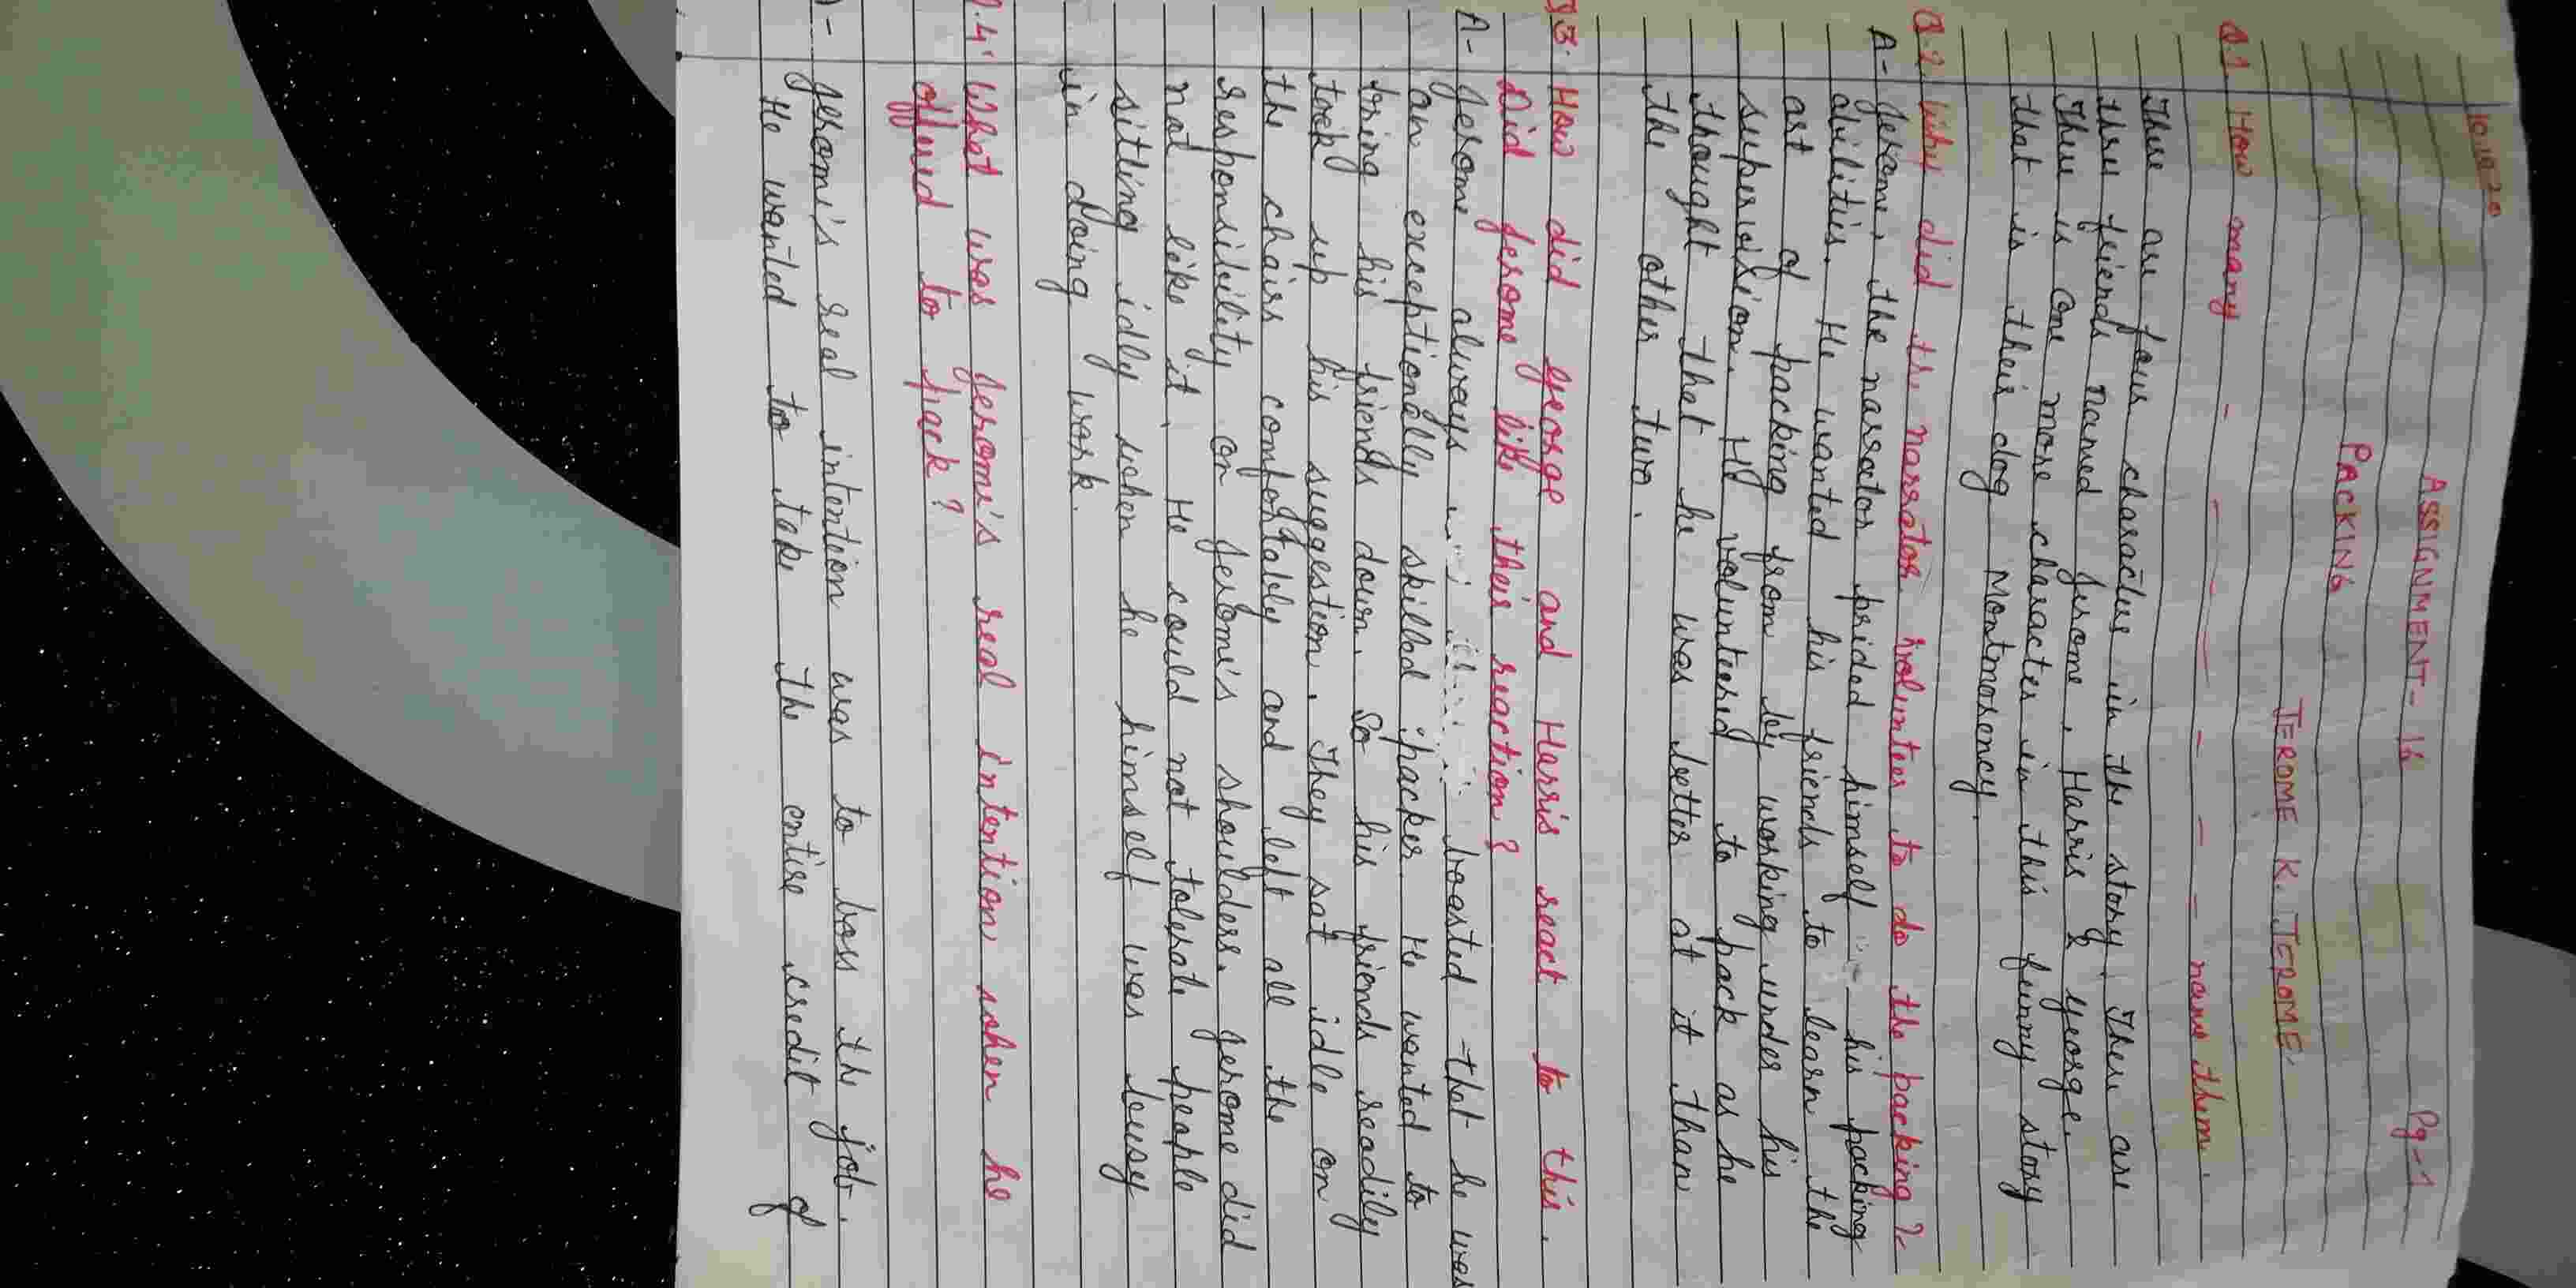 10.10.20
ASSIGNMENT- 16 Pg-1
PACKING
JEROME K. JEROME.
Q.1 How many - - - - - - - name them.
There are four characters in the story. There are
three friends named Jerome, Harris & George.
There is one more character in this funny story
that is their dog Montmorency.
Q.2 Why did the narrator volunteer to do the packing?
A- Jerome, the narrator prided himself his packing
abilities. He wanted his friends to learn the
art of packing from by working under his
supervision. He volunteered to pack as he
thought that he was better at it than
the other two.
Q3. How did George and Harris react to this.
Did Jerome like their reaction?
A- Jerome always boasted that he was
an exceptionally skilled packer. He wanted to
bring his friends down. So his friends readily
took up his suggestion. They sat idle on
the chairs comfortably and left all the
responsibility on Jerome's shoulders. Jerome did
not like it. He could not tolerate people
sitting idly when he himself was busy
in doing work.
Q.4. What was Jerome's real intention when he
offered to pack?
A- Jerome's real intention was to boss the job.
He wanted to take the entire credit of